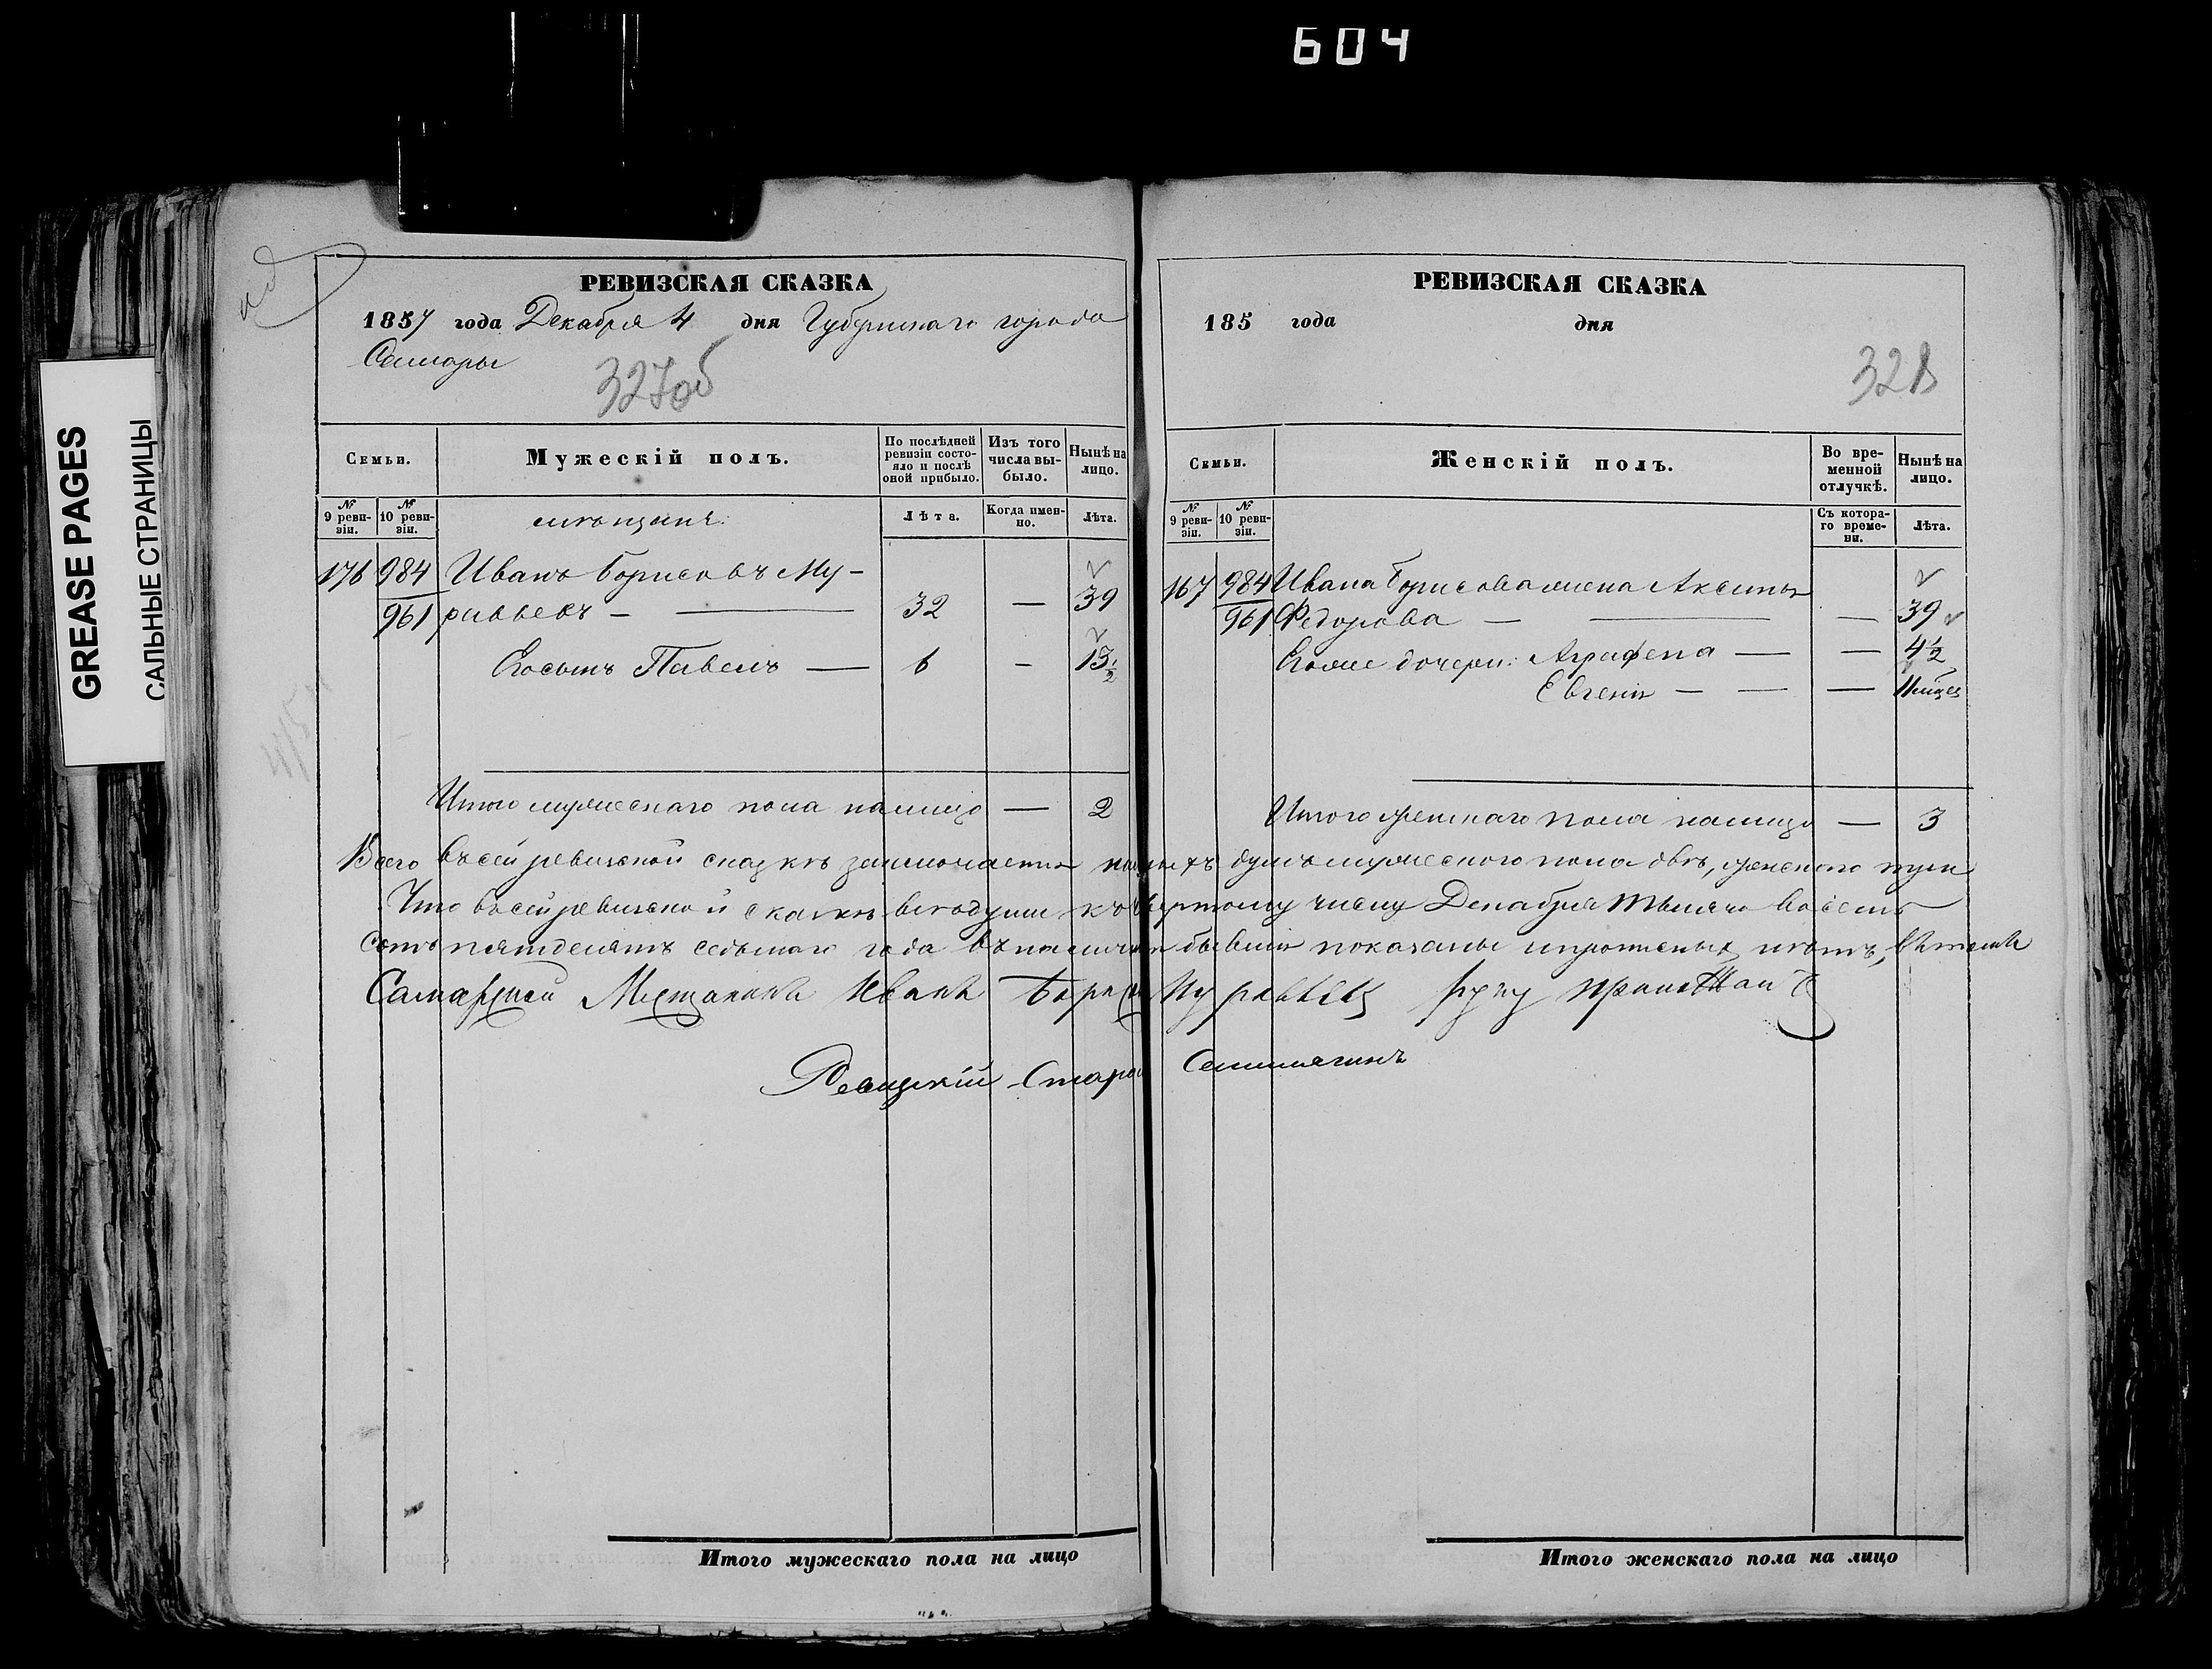 604
GREASE PAGES
САЛЬНЫЕ СТРАНИЦЫ
РЕВИЗСКАЯ СКАЗКА
1857 года Декабря 4 дня Губернскаго города
Самары
327об
Семьи.
Мужескій полъ.
По послѣдней ревизіи состояло и послѣ оной прибыло.
Изъ того числа выбыло.
Нынѣ на лицо.
№ 9 ревизіи.
№ 10 ревизіи.
мѣщане.
Лѣта.
Когда именно.
Лѣта.
176 984 Иванъ Борисовъ Му-
961 равьевъ — 32 — 39
Егосынъ Павелъ — 6 — 13 1/2
Итого мужескаго пола налицо — 2
РЕВИЗСКАЯ СКАЗКА
185 года дня
328
Семьи.
Женскій полъ.
Во временной отлучкѣ.
Нынѣ на лицо.
№ 9 ревизіи.
№ 10 ревизіи.
Съ котораго времени.
Лѣта.
167 984 Ивана Борисова жена Аксинья
961 Федорова — — 39
Егоже дочери: Аграфена — — 4 1/2
Евгенія — — — 11 мѣсяц
Итого женскаго пола налицо — 3
Всего въсей ревизской сказкѣ заключается душъ мужескаго пола двѣ, женскаго три
Что въсей ревизской сказкѣ вседуши къ четвертому числу Декабря тысяча восемь
сотъ пятдесятъ седьмаго года въ наличіи бывшія показаны ипрописныхъ нѣтъ, вѣтомъ
Самарской Мещанинъ Иванъ Борисов Муравьевъ руку приложилъ
Ревизскій Старо
Итого мужескаго пола на лицо
Итого женскаго пола на лицо